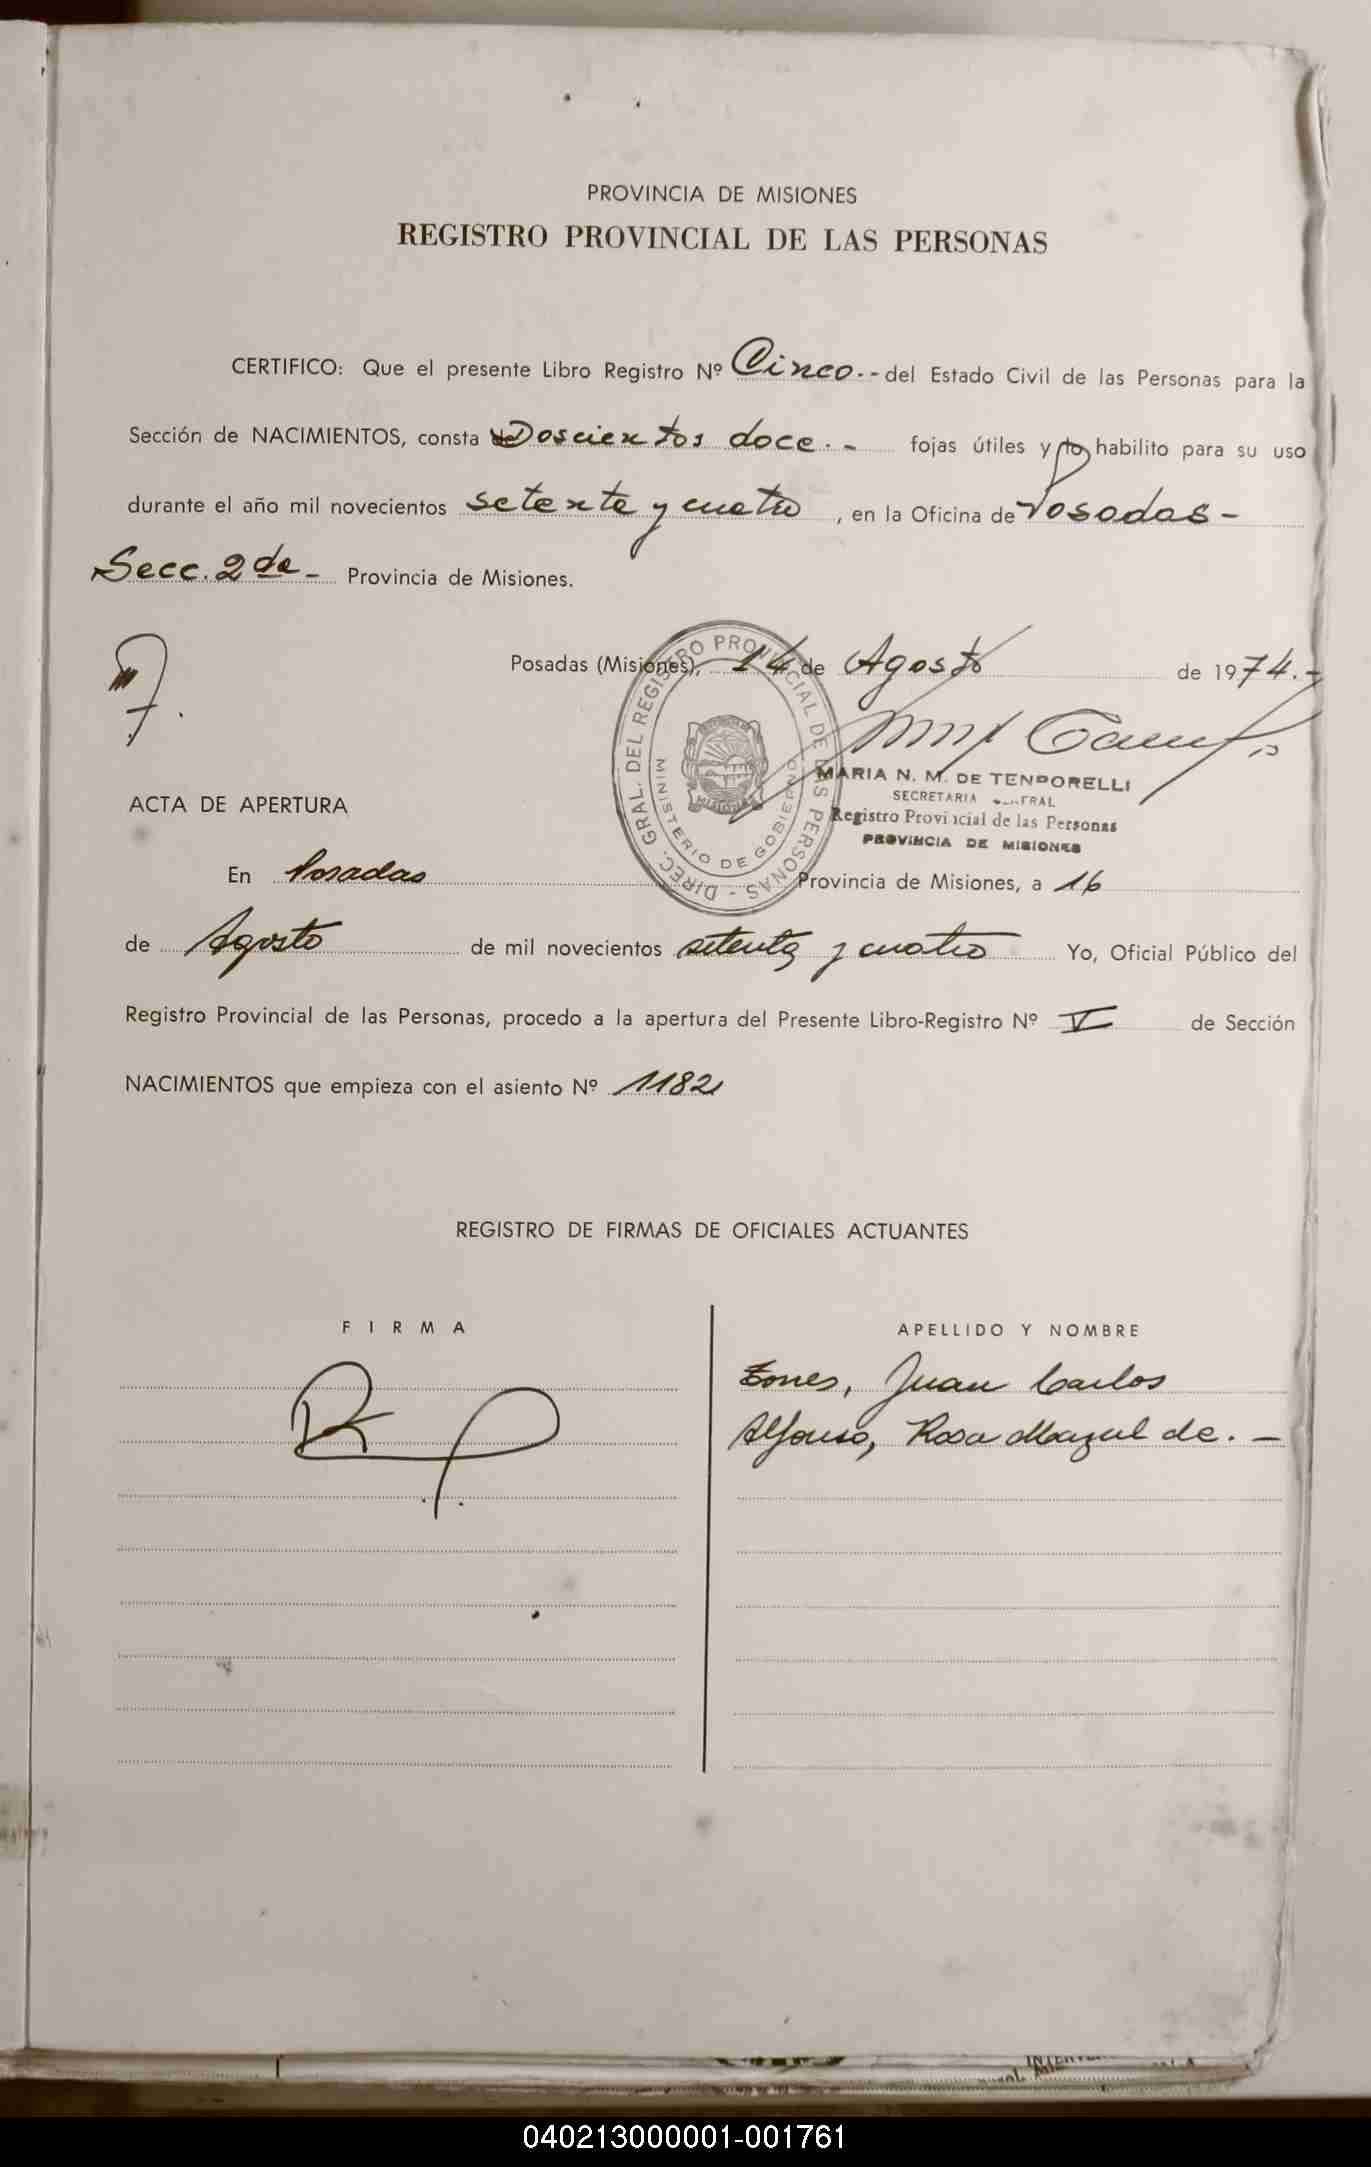 PROVINCIA DE MISIONES
REGISTRO PROVINCIAL DE LAS PERSONAS
CERTIFICO: Que el presente Libro Registro Nº Cinco.- del Estado Civil de las Personas para la
Sección de NACIMIENTOS, consta Doscientos doce.- fojas útiles y lo habilito para su uso
durante el año mil novecientos setenta y cuatro, en la Oficina de Posadas-
Secc. 2da- Provincia de Misiones.
Posadas (Misiones), 14 de Agosto de 1974.-
DIREC. GRAL. DEL REGISTRO PROVINCIAL DE LAS PERSONAS -
MINISTERIO DE GOBIERNO
MISIONES
MARIA N. M. DE TEMPORELLI
SECRETARIA GENERAL
Registro Provincial de las Personas
PROVINCIA DE MISIONES
ACTA DE APERTURA
En Posadas Provincia de Misiones, a 16
de Agosto de mil novecientos setenta y cuatro Yo, Oficial Público del
Registro Provincial de las Personas, procedo a la apertura del Presente Libro-Registro Nº V de Sección
NACIMIENTOS que empieza con el asiento Nº 1182
REGISTRO DE FIRMAS DE OFICIALES ACTUANTES
FIRMA
APELLIDO Y NOMBRE
Juan Carlos
Alfonso, Rosa Mazul de.-
040213000001-001761